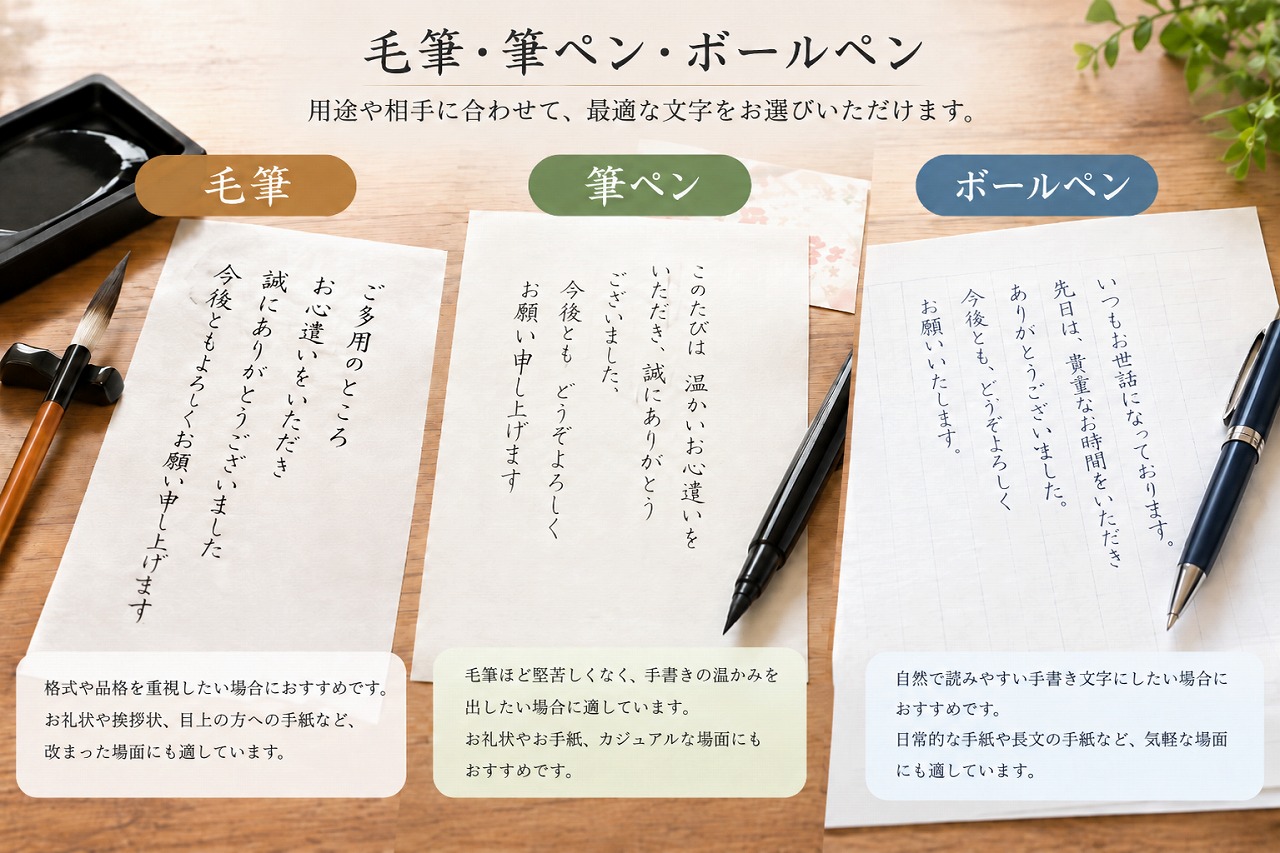 毛筆・筆ペン・ボールペン
用途や相手に合わせて、最適な文字をお選びいただけます。
毛筆
ご多用のところ
お心遣いをいただき
誠にありがとうございました
今後ともよろしくお願い申し上げます
格式や品格を重視したい場合におすすめです。
お礼状や挨拶状、目上の方への手紙など、
改まった場面にも適しています。
筆ペン
このたびは 温かいお心遣いを
いただき、誠にありがとう
ございました、
今後とも どうぞよろしく
お願い申し上げます
毛筆ほど堅苦しくなく、手書きの温かみを
出したい場合に適しています。
お礼状やお手紙、カジュアルな場面にも
おすすめです。
ボールペン
いつもお世話になっております。
先日は、貴重なお時間をいただき
ありがとうございました。
今後とも、どうぞよろしく
お願いいたします。
自然で読みやすい手書き文字にしたい場合に
おすすめです。
日常的な手紙や長文の手紙など、気軽な場面
にも適しています。